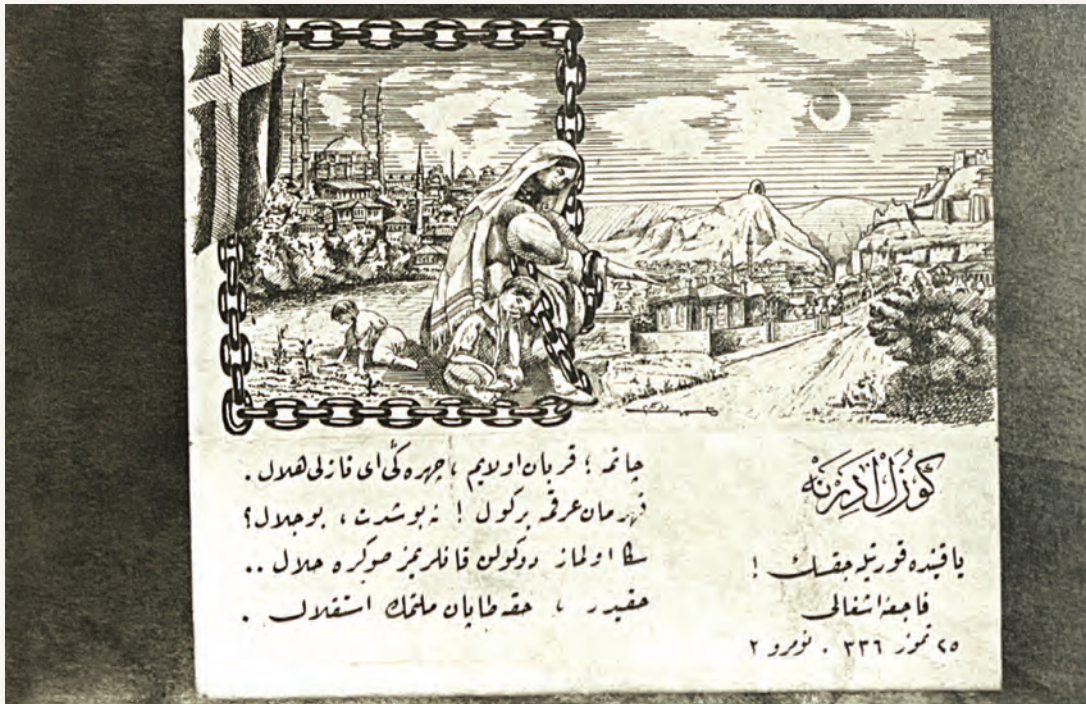 كوزل ادرنه
ياقينده قورتيله جقسك !
فاجعهٔ اشغالى
٢٥ تموز ٣٣٦ . نومرو ٢
چاتمه ؛ قربان اولايم ، چهره ڭى اى نازلى هلال .
قهرمان عرقمه بركول ! نه بو شدت ، بو جلال ؟
سڭا اولماز دوكولن قانلريمز صوڭره حلال ..
حقيدر ، حقه طاپان ملتمك استقلال .